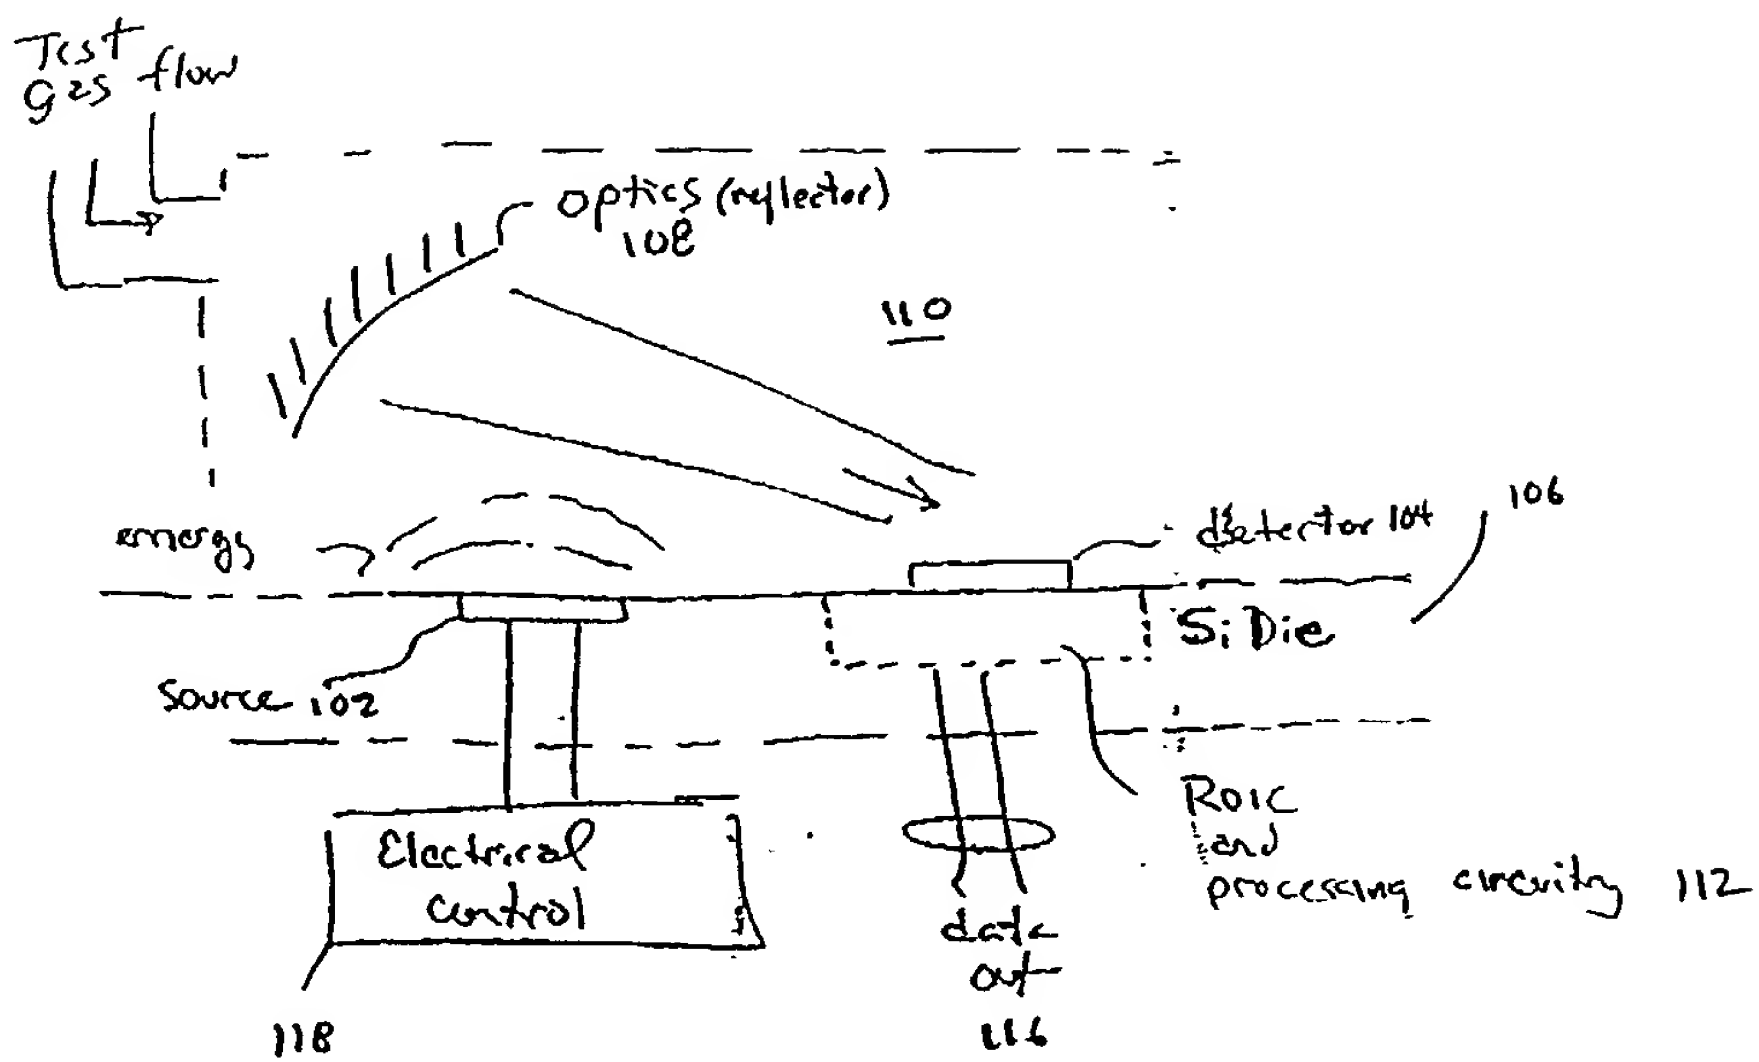 Test
gas flow
optics (reflector)
108
110
energy
detector 104
106
Si Die
source 102
ROIC
and
processing circuitry 112
Electrical
control
data
out
116
118